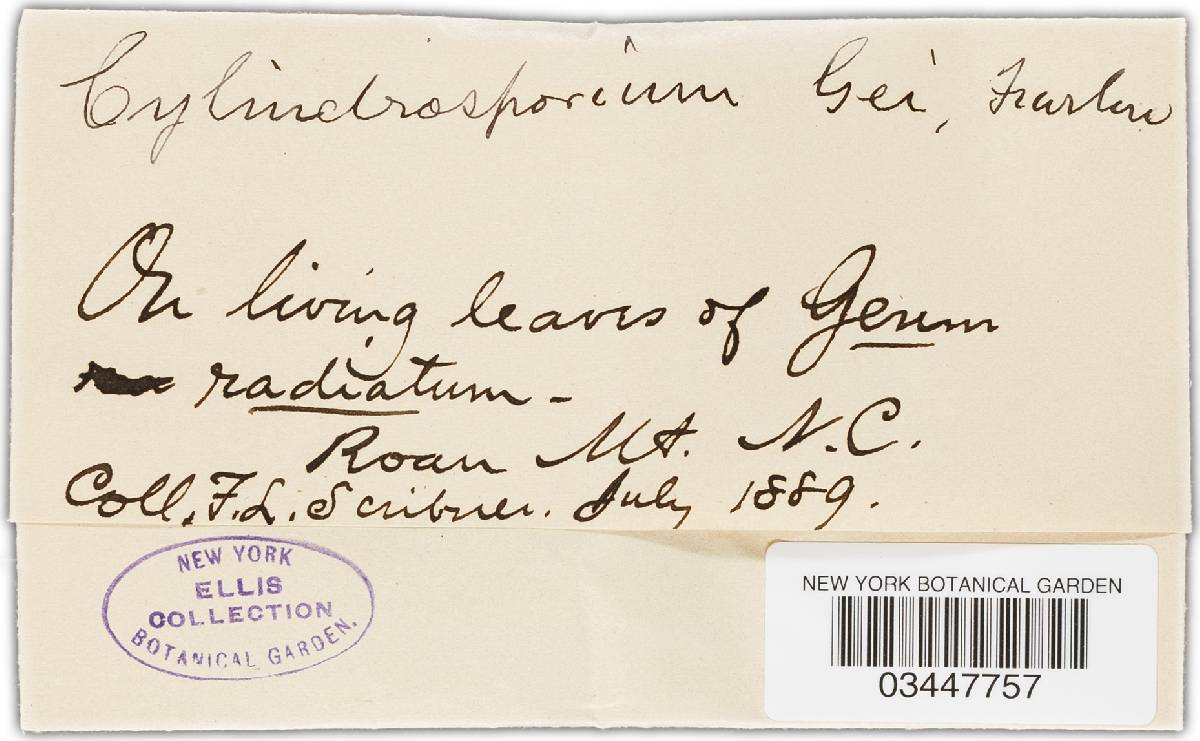 Cylindrosporium Gei, Farlow
On living leaves of Geum
radiatum -
Roan Mt. N.C.
Coll. F.L. Scribner. July 1889.
NEW YORK
ELLIS
COLLECTION
BOTANICAL GARDEN.
NEW YORK BOTANICAL GARDEN
03447757